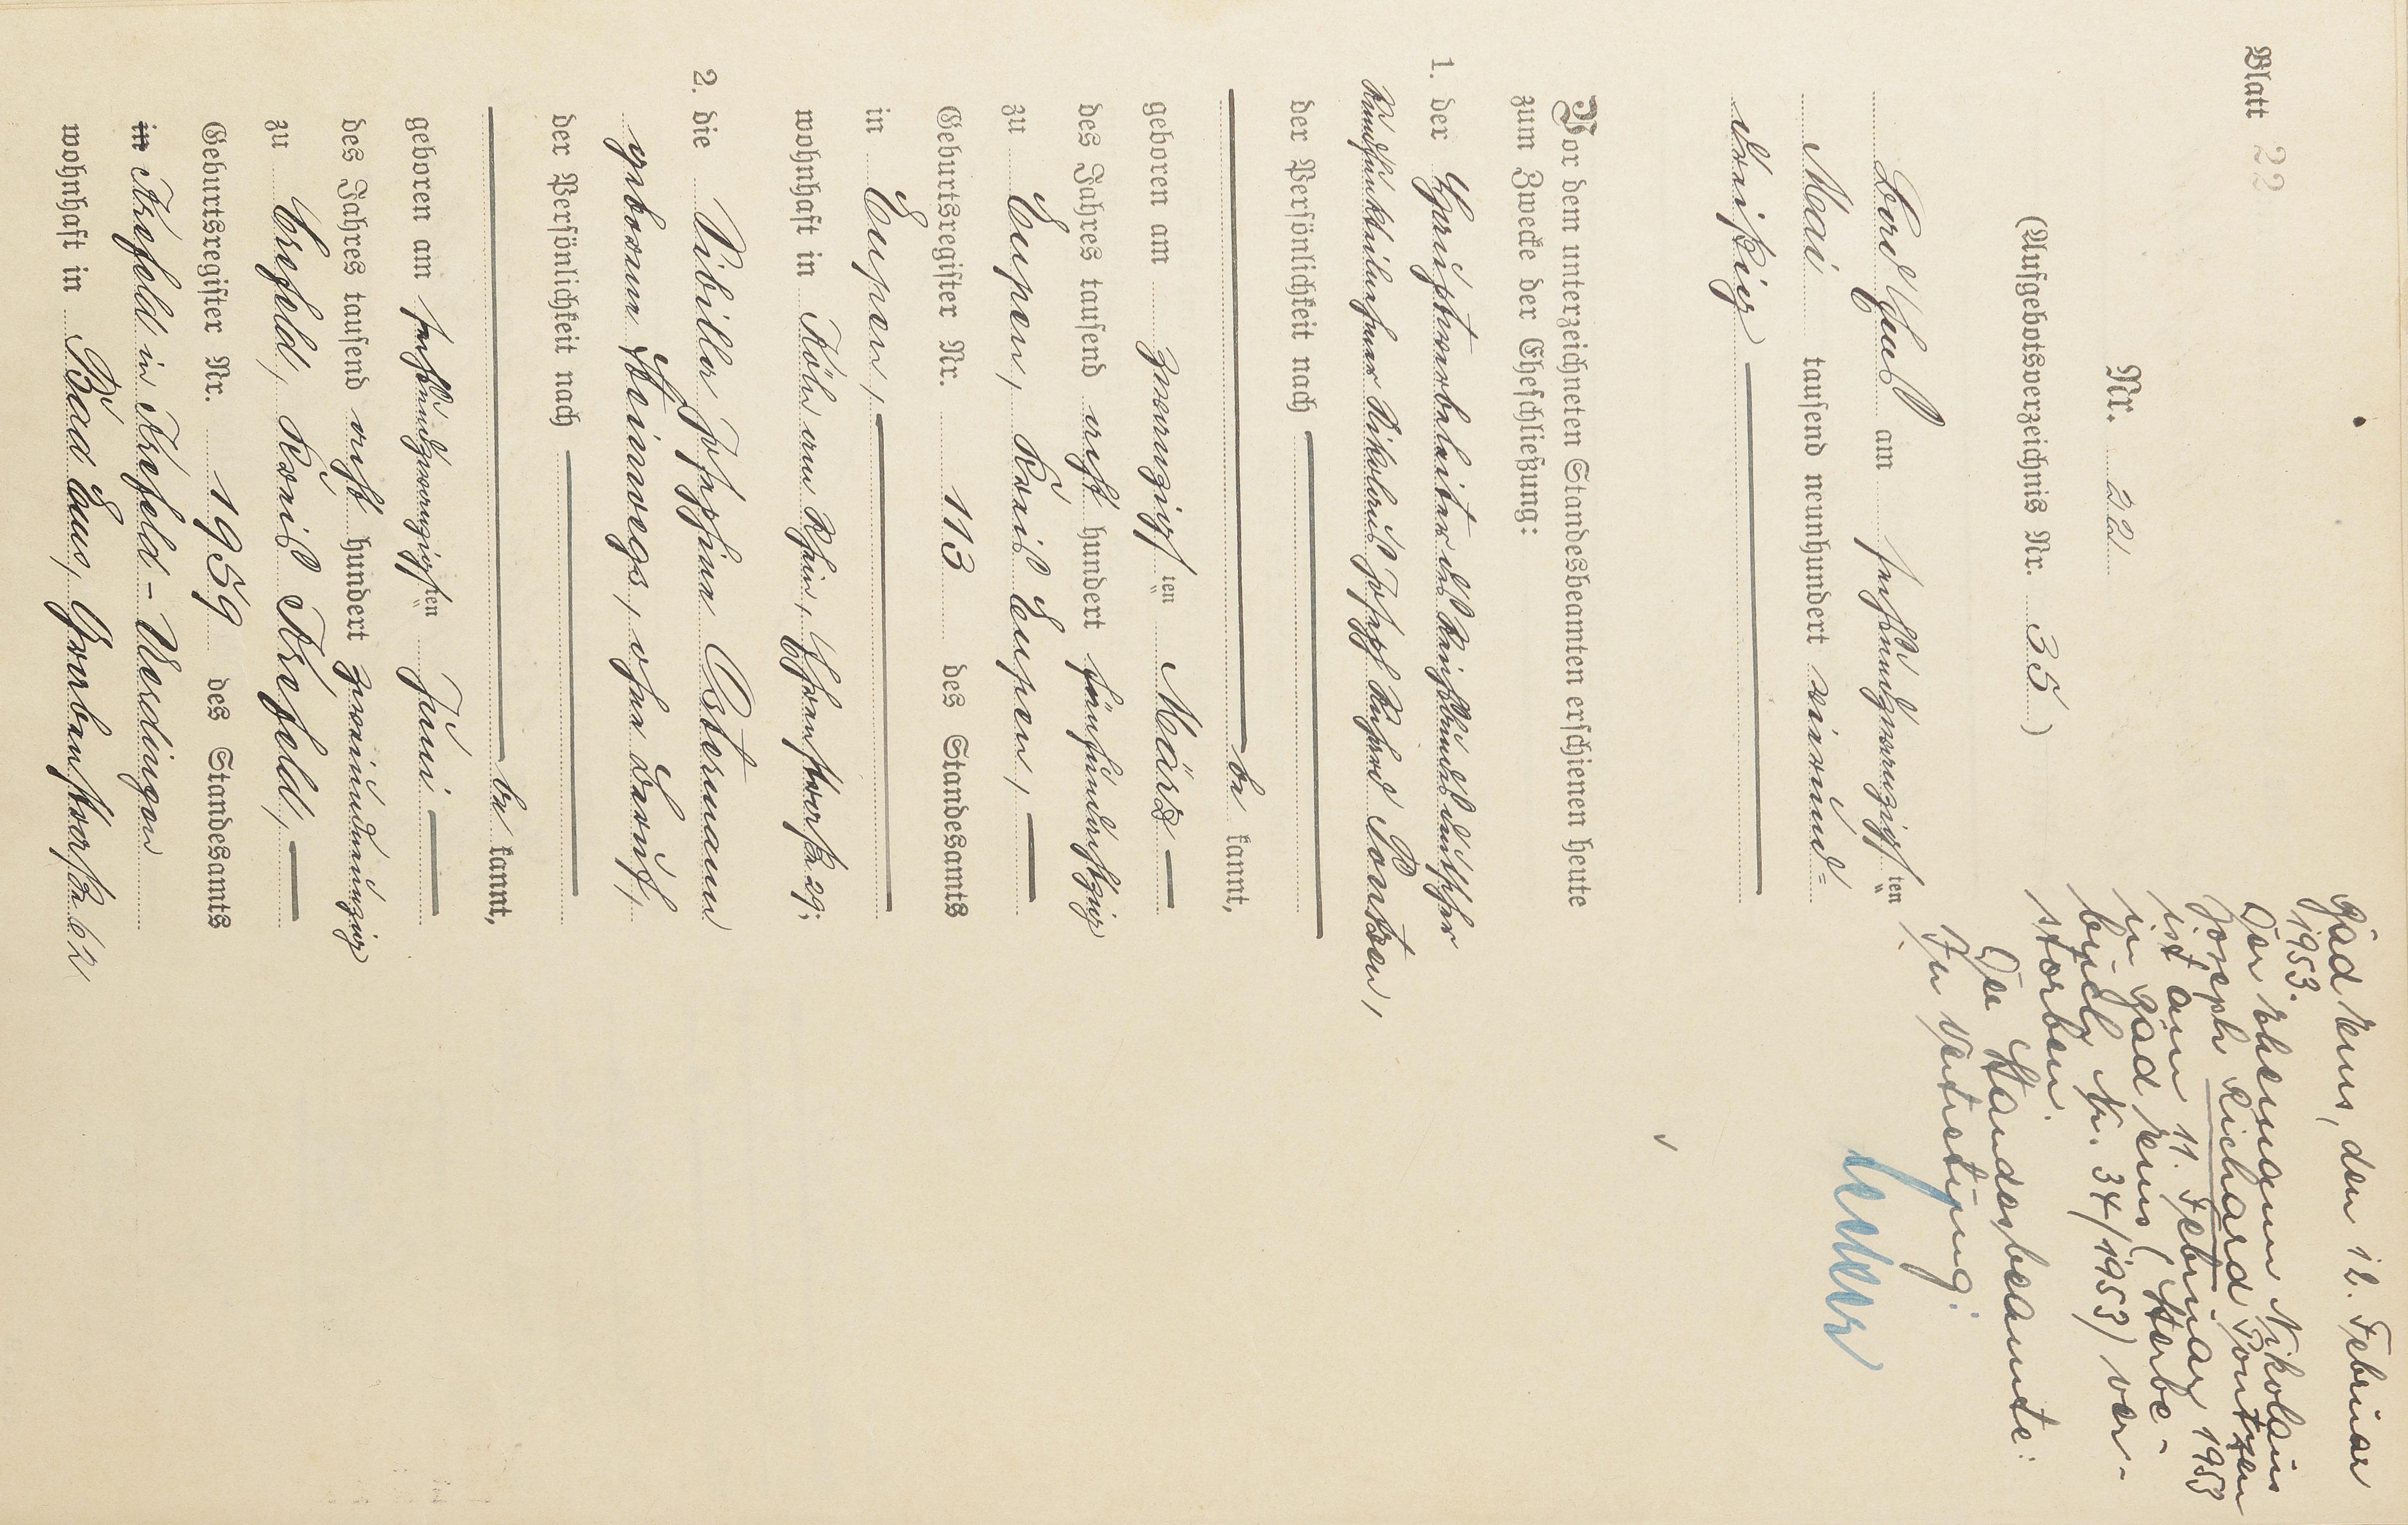 Blatt 22
Nr. 22
(Aufgebotsverzeichnis Nr. 35)
Bad Ems am sechsundzwanzigsten
Mai tausend neunhundert vierund-
dreißig
Vor dem unterzeichneten Standesbeamten erschienen heute
zum Zwecke der Eheschließung:
1. der Hauptverbandsleiter des Reichsbundes deutscher
Nikolaus Joseph Richard Pontzen,
der Persönlichkeit nach
be kannt,
geboren am zwanzigsten März
des Jahres tausend acht hundert fünfundachtzig
zu Eupen, Kreis Eupen,
Geburtsregister Nr. 113 des Standesamts
in Eupen,
wohnhaft in Köln am Rhein, 29;
2. die Sibilla Josephina Ostermann
geborene Steinwegs, ohne Beruf,
der Persönlichkeit nach
be kannt,
geboren am sechsundzwanzigsten Juni
des Jahres tausend acht hundert zweiundneunzig
zu Crefeld, Kreis Krefeld,
Geburtsregister Nr. 1959 des Standesamts
in Krefeld in Krefeld-Uerdingen
wohnhaft in Bad Ems, Grabenstraße 62
Bad Ems, den 12. Februar
1953.
Der Ehemann Nikolaus
Joseph Richard Pontzen
ist am 11. Februar 1953
in Bad Ems (Sterbe-
buch Nr. 34/1953) ver-
storben.
Der Standesbeamte:
In Vertretung:
Becker